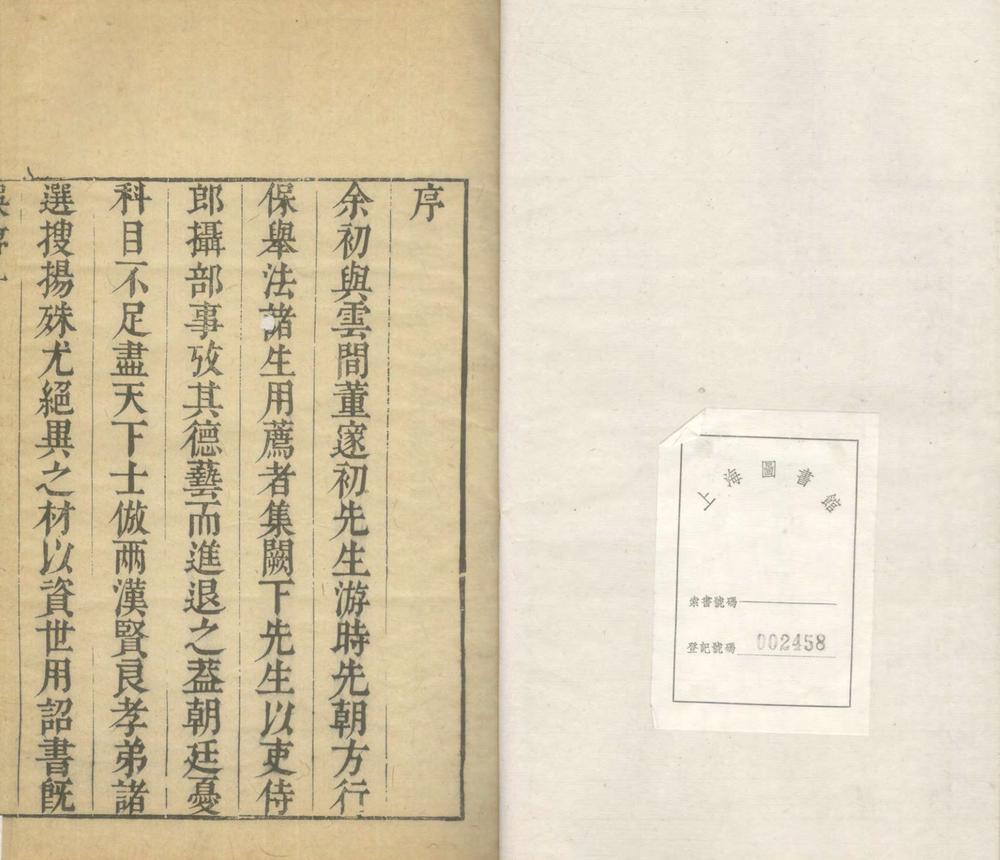 序
余初與雲間董邃初先生游時先朝方行
保舉法諸生用薦者集闕下先生以吏侍
郎攝部事攷其德藝而進退之葢朝廷憂
科目不足盡天下士倣兩漢賢良孝弟諸
選搜揚殊尤絕異之材以資世用詔書旣
上海圖書館
索書號碼
登記號碼 002458